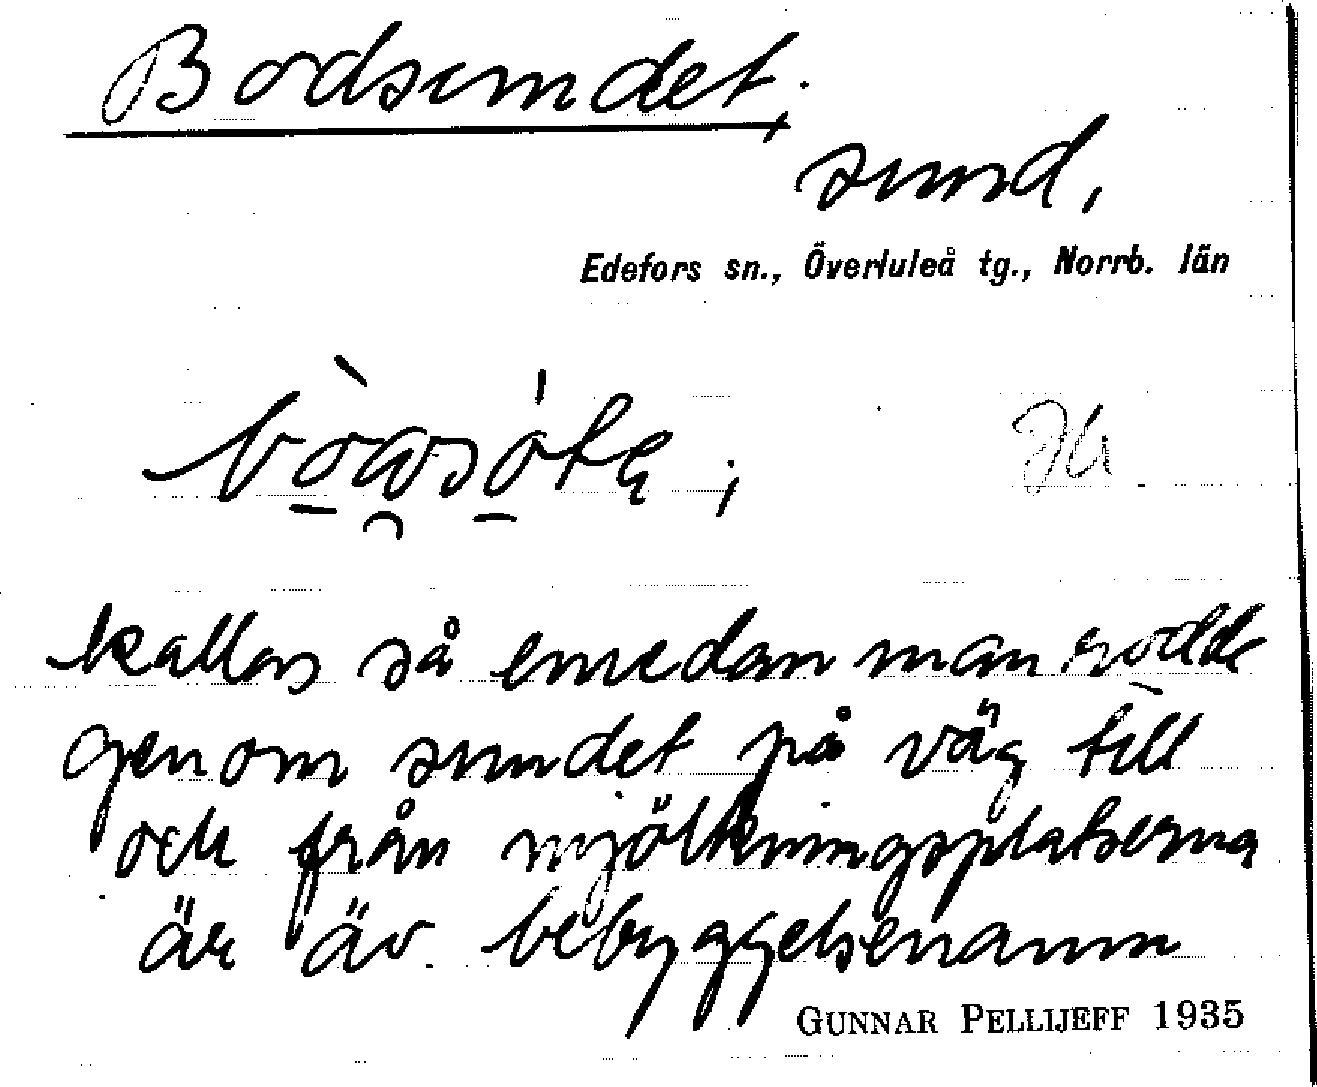 Bodsundet,
sund,
Edefors sn., Överluleå tg., Norrb. län
kallas så emedan man rodde
genom sundet på väg till
och från mjölkningsplatserna
är äv. bebyggelsenamn
GUNNAR PELLIJEFF 1935